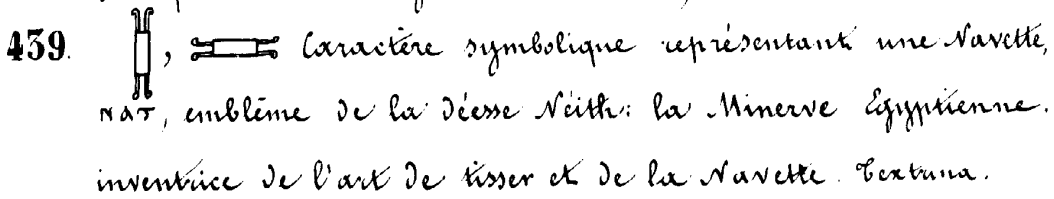 439. , Caractère symbolique représentant une Navette,
ⲚⲀⲦ, emblême de la Déesse Néith: la Minerve Egyptienne.
inventrice de l'art de tisser et de la Navette. Textrina.